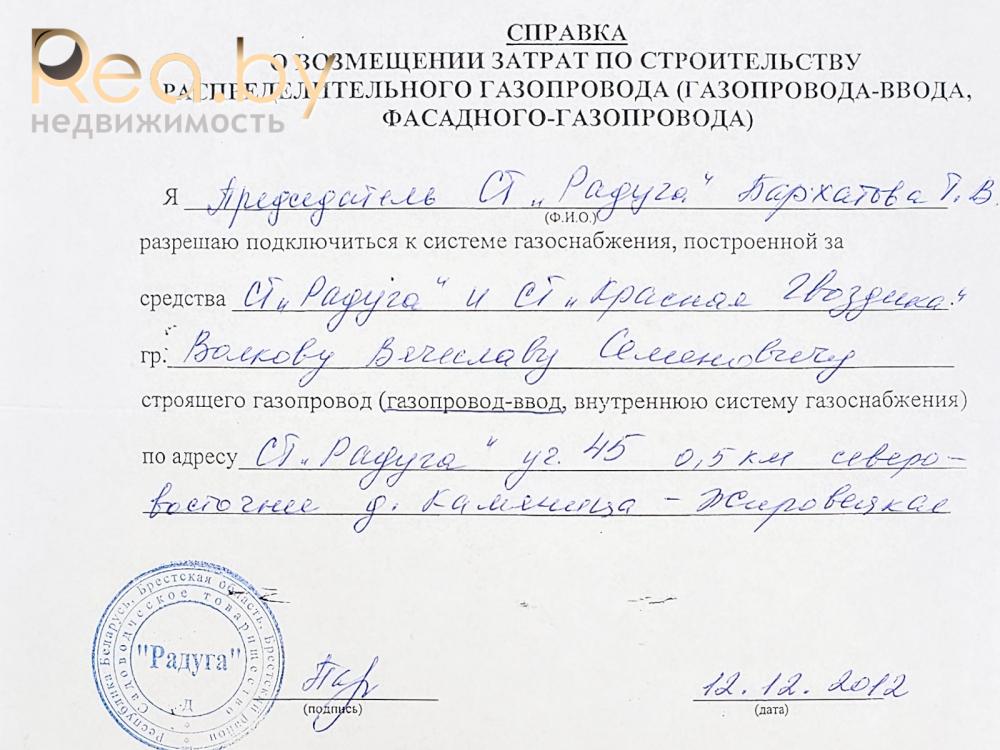 Rea.by
недвижимость
СПРАВКА
О ВОЗМЕЩЕНИИ ЗАТРАТ ПО СТРОИТЕЛЬСТВУ
РАСПРЕДЕЛИТЕЛЬНОГО ГАЗОПРОВОДА (ГАЗОПРОВОДА-ВВОДА,
ФАСАДНОГО-ГАЗОПРОВОДА)
Я Председатель СТ „Радуга" Бархатова Т.В.
(Ф.И.О.)
разрешаю подключиться к системе газоснабжения, построенной за
средства СТ „Радуга" и СТ „Красная Гвоздика"
гр. Волкову Вячеславу Семеновичу
строящего газопровод (газопровод-ввод, внутреннюю систему газоснабжения)
по адресу СТ „Радуга" уч. 45 0,5 км северо-
восточнее д. Каменица - Жировецкая
Республика Беларусь, Брестская область, Брестский район
Садоводческое товарищество
"Радуга"
Д
(подпись)
12.12.2012
(дата)